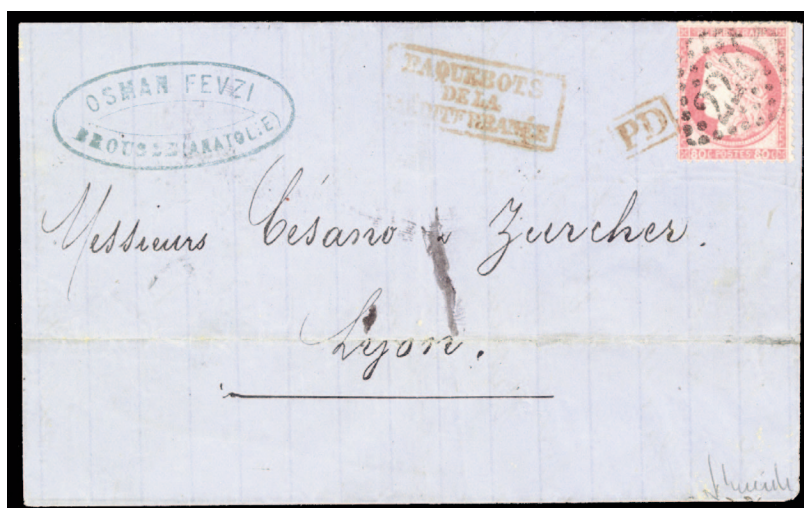 OSMAN FEVZI
BROUSSE (ANATOLIE)
PAQUEBOTS
DE LA
MÉDITERRANÉE
PD
80 C POSTES 80 C
Messieurs Césano & Zurcher.
Lyon.